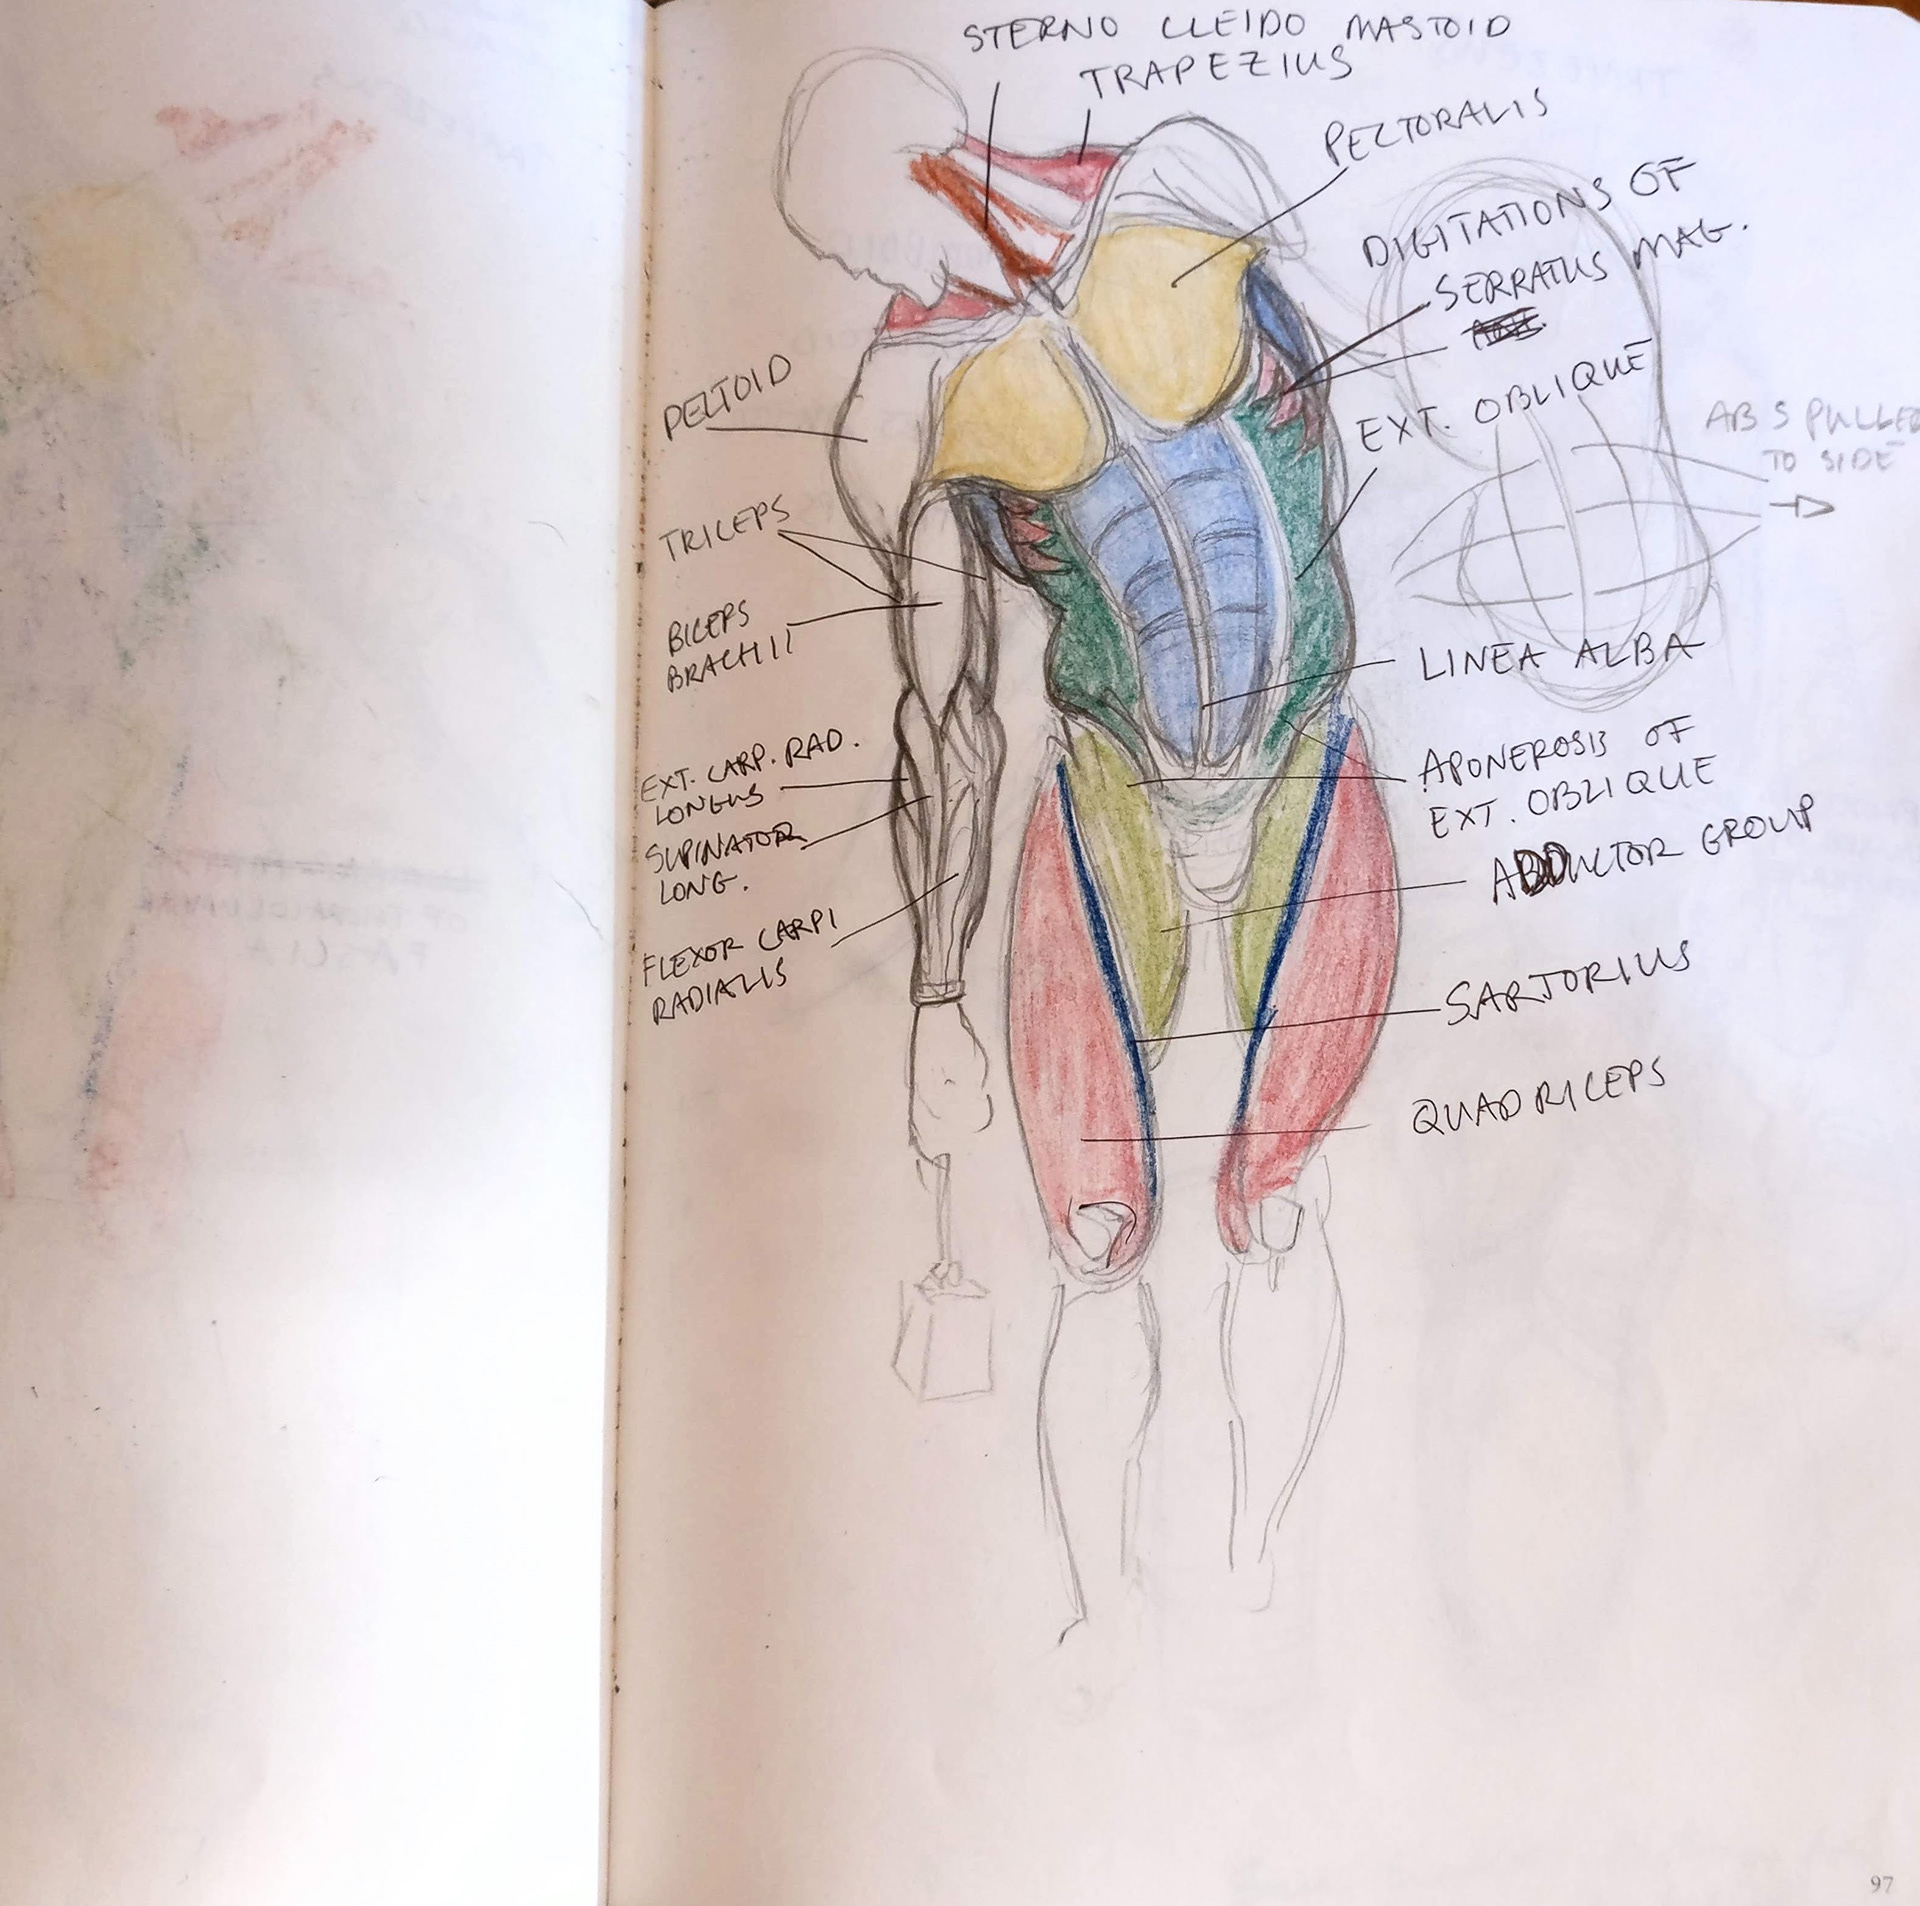 STERNO CLEIDO MASTOID
TRAPEZIUS
PECTORALIS
DIGITATIONS OF
SERRATUS MAG.
EXT. OBLIQUE
ABS PULLED
TO SIDE
DELTOID
TRICEPS
BICEPS
BRACHII
LINEA ALBA
EXT. CARP. RAD.
LONGUS
SUPINATOR
LONG.
FLEXOR CARPI
RADIALIS
APONEROSIS OF
EXT. OBLIQUE
ADDUCTOR GROUP
SARTORIUS
QUADRICEPS
97